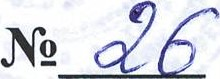 № 26